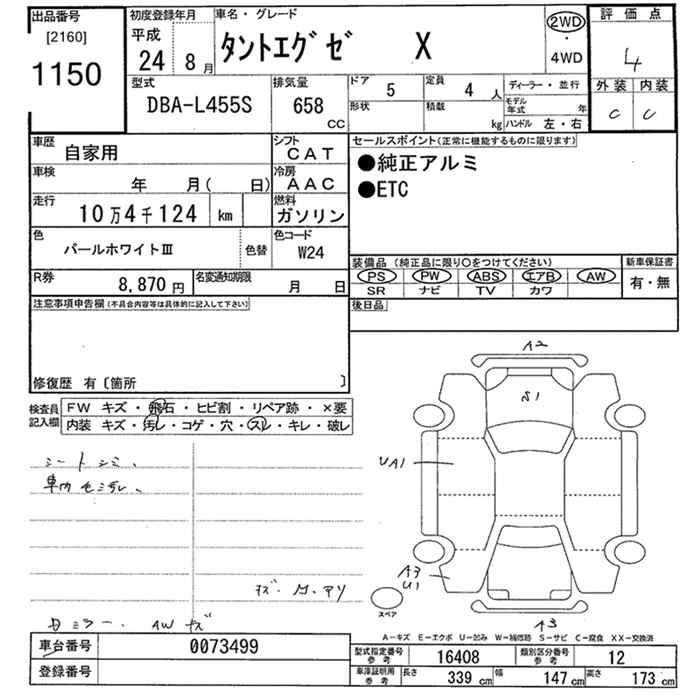 出品番号 初度登録年月 車名・グレード 評価点
[2160] 平成 2WD
1150 24 8月 タントエグゼ X ・ 4
4WD
型式 排気量 ドア 5 定員 4 人 ディーラー・並行 外装 内装
DBA-L455S 658 CC 形状 積載 kg モデル年式 年 C C
ハンドル 左・右
車歴 自家用 シフト CAT セールスポイント(正常に機能するものに限ります)
車検 年 月( 日) 冷房 AAC ●純正アルミ
走行 10万4千124 km 燃料 ガソリン ●ETC
色 パールホワイトⅢ 色替 色コード W24
装備品 (純正品に限り〇をつけてください) 新車保証書
R券 8,870円 名変通知期限 月 日 PS PW ABS エアB AW 有・無
SR ナビ TV カワ
注意事項申告欄(不具合内容等は具体的に記入して下さい) 後日品
修復歴 有〔箇所 〕
検査員記入欄 FW キズ・飛石・ヒビ割・リペア跡・×要
内装 キズ・汚レ・コゲ・穴・スレ・キレ・破レ
シートシミ、
車内
A2
S1
UA1
A3
U1
A3
スペア
ミラー AW キズ
A－キズ E－エクボ U－凹み W－補修跡 S－サビ C－腐食 XX－交換済
車台番号 0073499 型式指定番号 参考 16408 類別区分番号 参考 12
登録番号 車庫証明用 参考 長さ 339 cm 幅 147 cm 高さ 173 cm